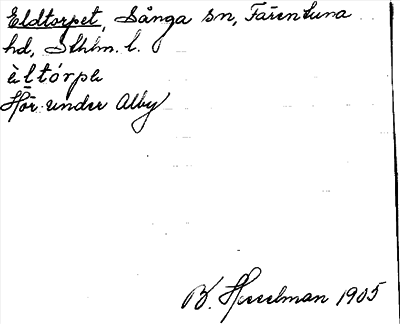 Eldtorpet, Sånga sn, Färentuna
hd, Sthlm. l.
èltórpe
Hör under Alby
B. Hesselman 1905